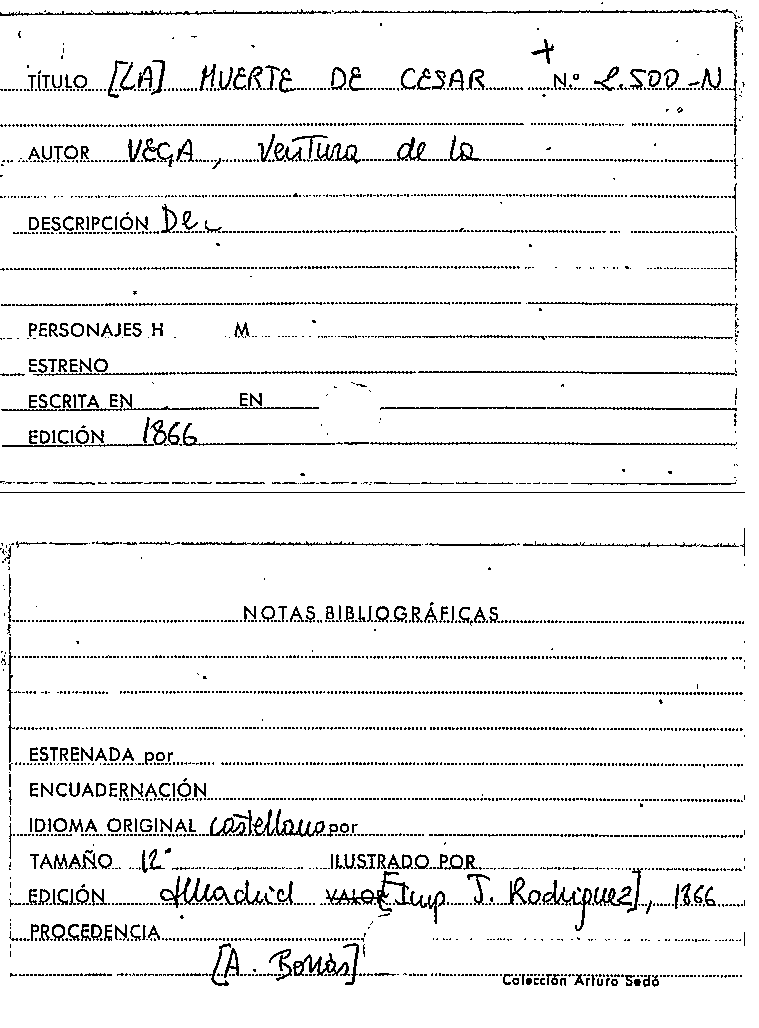 TÍTULO [LA] MUERTE DE CESAR N.º 2.500-N
AUTOR VEGA, Ventura de la
DESCRIPCIÓN De
PERSONAJES H M
ESTRENO
ESCRITA EN EN
EDICIÓN 1866
NOTAS BIBLIOGRÁFICAS
ESTRENADA por
ENCUADERNACIÓN
IDIOMA ORIGINAL castellano por
TAMAÑO 12º ILUSTRADO POR
EDICIÓN Madrid VALOR [Imp J. Rodriguez], 1866
PROCEDENCIA
[A. Borrás]
Colección Arturo Sedó